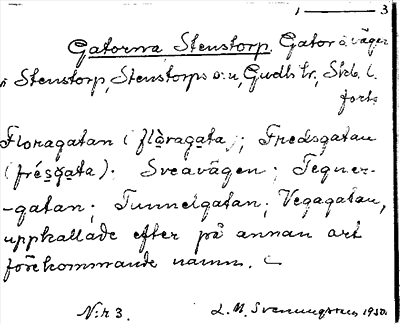 1 ——— 3
Gatorna, Stenstorp. Gator o. vägar
i Stenstorp, Stenstorps s:n, Gudh. hr, Skb. l.
forts.
Floragatan (flɑ̀ragata); Fredsgatan
(frésgata). Sveavägen; Tegner-
-gatan; Tunnelgatan; Vegagatan,
uppkallade efter på annan ort
förekommande namn.
N:r 3. L. M. Svenungsson 1930.